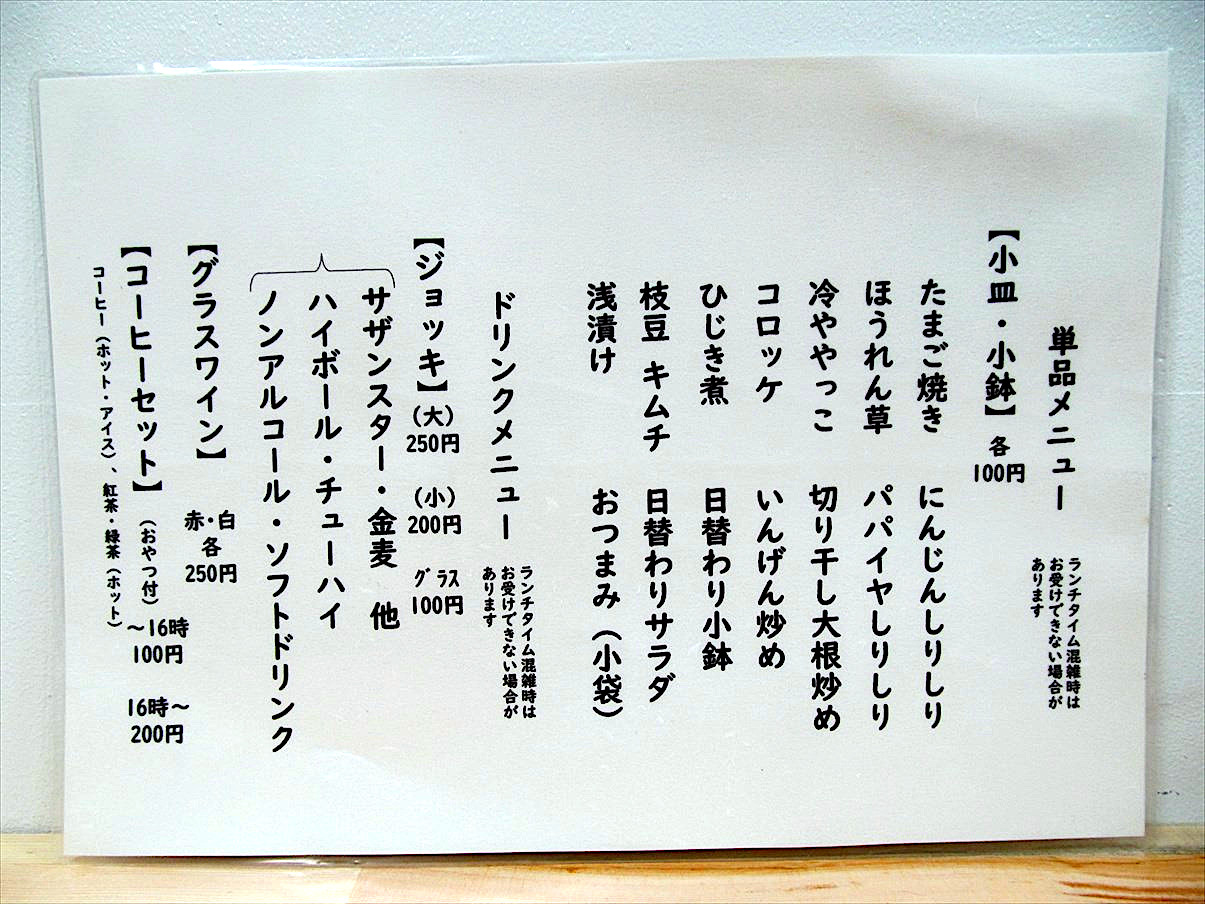 単品メニュー
ランチタイム混雑時は
お受けできない場合が
あります
【小皿・小鉢】 各100円
たまご焼き にんじんしりしり
ほうれん草 パパイヤしりしり
冷ややっこ 切り干し大根炒め
コロッケ いんげん炒め
ひじき煮 日替わり小鉢
枝豆 キムチ 日替わりサラダ
浅漬け おつまみ（小袋）
ドリンクメニュー
ランチタイム混雑時は
お受けできない場合が
あります
【ジョッキ】（大）250円 （小）200円 グラス100円
サザンスター・金麦 他
ハイボール・チューハイ
ノンアルコール・ソフトドリンク
【グラスワイン】 赤・白 各 250円
【コーヒーセット】（おやつ付）～16時 100円 16時～ 200円
コーヒー（ホット・アイス）、紅茶・緑茶（ホット）